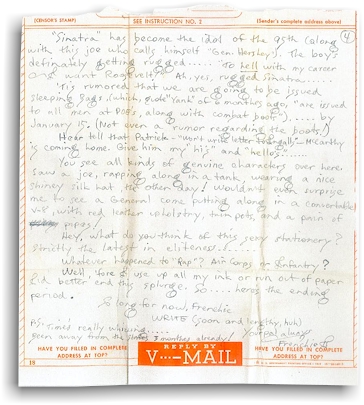 (CENSOR'S STAMP) SEE INSTRUCTION NO. 2 (Sender's complete address above)
4
"Sinatra" has become the idol of the 95th (along
with this joe who calls himself "Gen. Hershey"). The boy's
definately getting rugged.... "To hell with my career
I want Roosevelt". Ah, yes, rugged Sinatra.....
'Tis rumored that we are going to be issued
sleeping bags, (which, quote "Yank" of 6 months ago, "are issued
to all men at POE's, along with combat boots")..... by
January 15. (Not even a rumor regarding the boots!)
Hear tell that Patrick McCarthy
is coming home. Give him my "hi's" and "hellos".....
You see all kinds of genuine characters over here.
Saw a joe, rapping along in a tank, wearing a nice
shiney silk hat the other day! Wouldn't even surprise
me to see a General come putting along in a convertable
V-8, with red leather upholstry, trumpets, and a pair of
pipes!
Hey, what do you think of this sexy stationery?
Strictly the latest in eliteness......
Whatever happened to "Rap"? Air Corps or Infantry?
Well, 'fore I use up all my ink or run out of paper
I'd better end this splurge. So.... here's the ending
period.
So long for now, Frenchie
WRITE (soon and lengthy, huh)
P.S. Time's really
been away from the States 3 months already!
Your pal always
HAVE YOU FILLED IN COMPLETE
ADDRESS AT TOP?
REPLY BY
V···—MAIL
HAVE YOU FILLED IN COMPLETE
ADDRESS AT TOP?